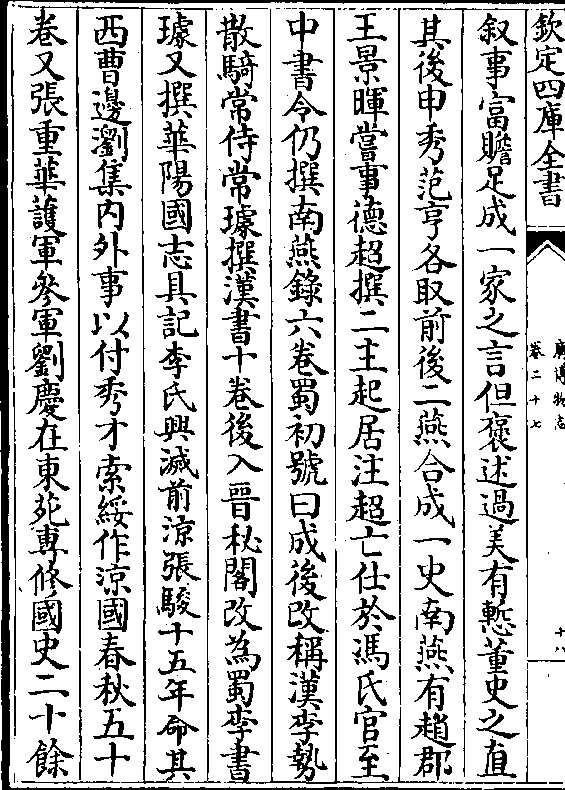 欽定四庫全書
廣博物志
卷二十七
十八
叙事富贍足成一家之言但褒述過美有慙董史之直
其後申秀范亨各取前後二燕合成一史南燕有趙郡
王景暉嘗事德超撰二主起居注超亡仕於馮氏官至
中書令仍撰南燕錄六卷蜀初號曰成後改稱漢李勢
散騎常侍常璩撰漢書十卷後入晉秘閣改為蜀李書
璩又撰華陽國志具記李氏興滅前涼張駿十五年命其
西曹邊瀏集内外事以付秀才索綏作涼國春秋五十
卷又張重華護軍參軍劉慶在東苑專修國史二十餘